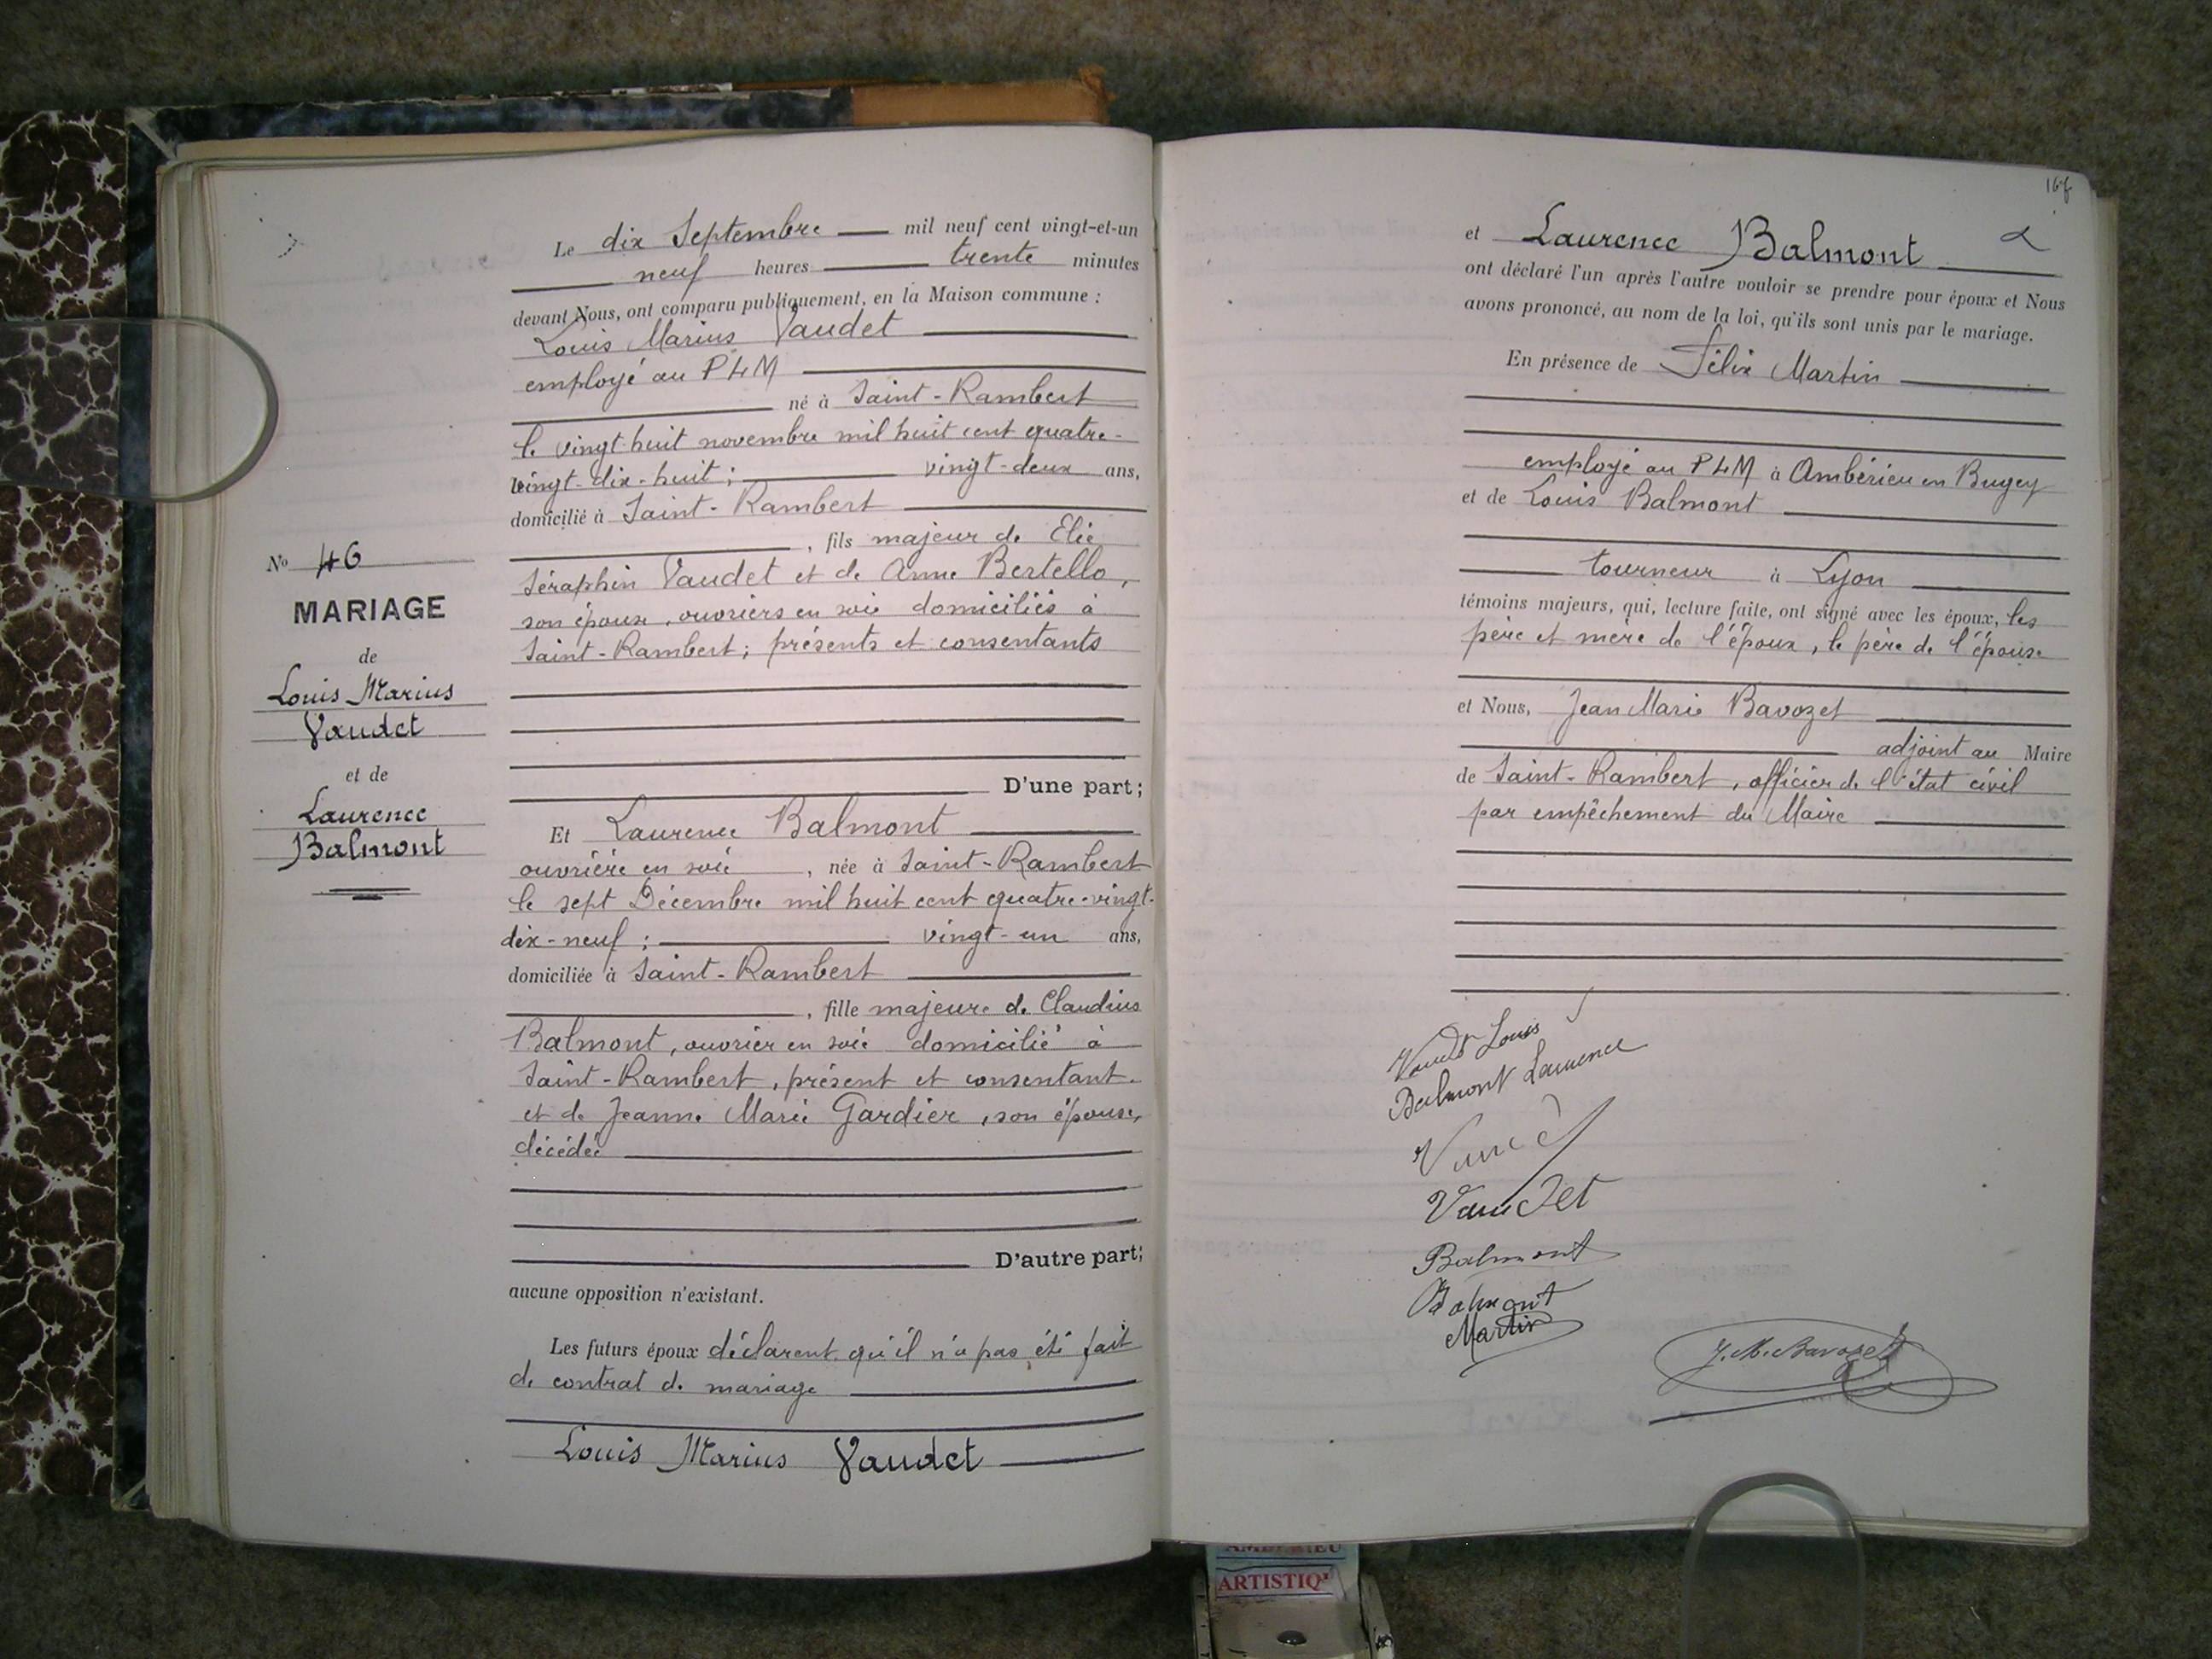 Le dix Septembre mil neuf cent vingt-et-un
neuf heures trente minutes
devant Nous, ont comparu publiquement, en la Maison commune :
Louis Marius Vaudet
employé au PLM
né à Saint-Rambert
le vingt-huit novembre mil huit cent quatre-
vingt-dix-huit ; vingt-deux ans,
domicilié à Saint-Rambert
, fils majeur de Elie
Séraphin Vaudet et de Anne Bertello,
son épouse, ouvriers en soie domiciliés à
Saint-Rambert ; présents et consentants
D'une part ;
Et Laurence Balmont
ouvrière en soie , née à Saint-Rambert
le sept Décembre mil huit cent quatre-vingt-
dix-neuf ; vingt-un ans,
domiciliée à Saint-Rambert
, fille majeure de Claudius
Balmont, ouvrier en soie domicilié à
Saint-Rambert, présent et consentant
et de Jeanne Marie Gardier, son épouse,
décédée
D'autre part ;
aucune opposition n'existant.
Les futurs époux déclarent qu'il n'a pas été fait
de contrat de mariage
Louis Marius Vaudet
No 46
MARIAGE
de
Louis Marius
Vaudet
et de
Laurence
Balmont
et Laurence Balmont
ont déclaré l'un après l'autre vouloir se prendre pour époux et Nous
avons prononcé, au nom de la loi, qu'ils sont unis par le mariage.
En présence de Félix Martin
employé au PLM à Ambérieu en Bugey
et de Louis Balmont
tourneur à Lyon
témoins majeurs, qui, lecture faite, ont signé avec les époux, les
père et mère de l'époux, le père de l'épouse
et Nous, Jean Marie Bavozet
adjoint au Maire
de Saint-Rambert, officier de l'état civil
par empêchement du Maire
Vaudet Louis
Balmont Laurence
Vaudet
Balmont
Balmont
Martin
J. M. Bavozet
ARTISTIQ